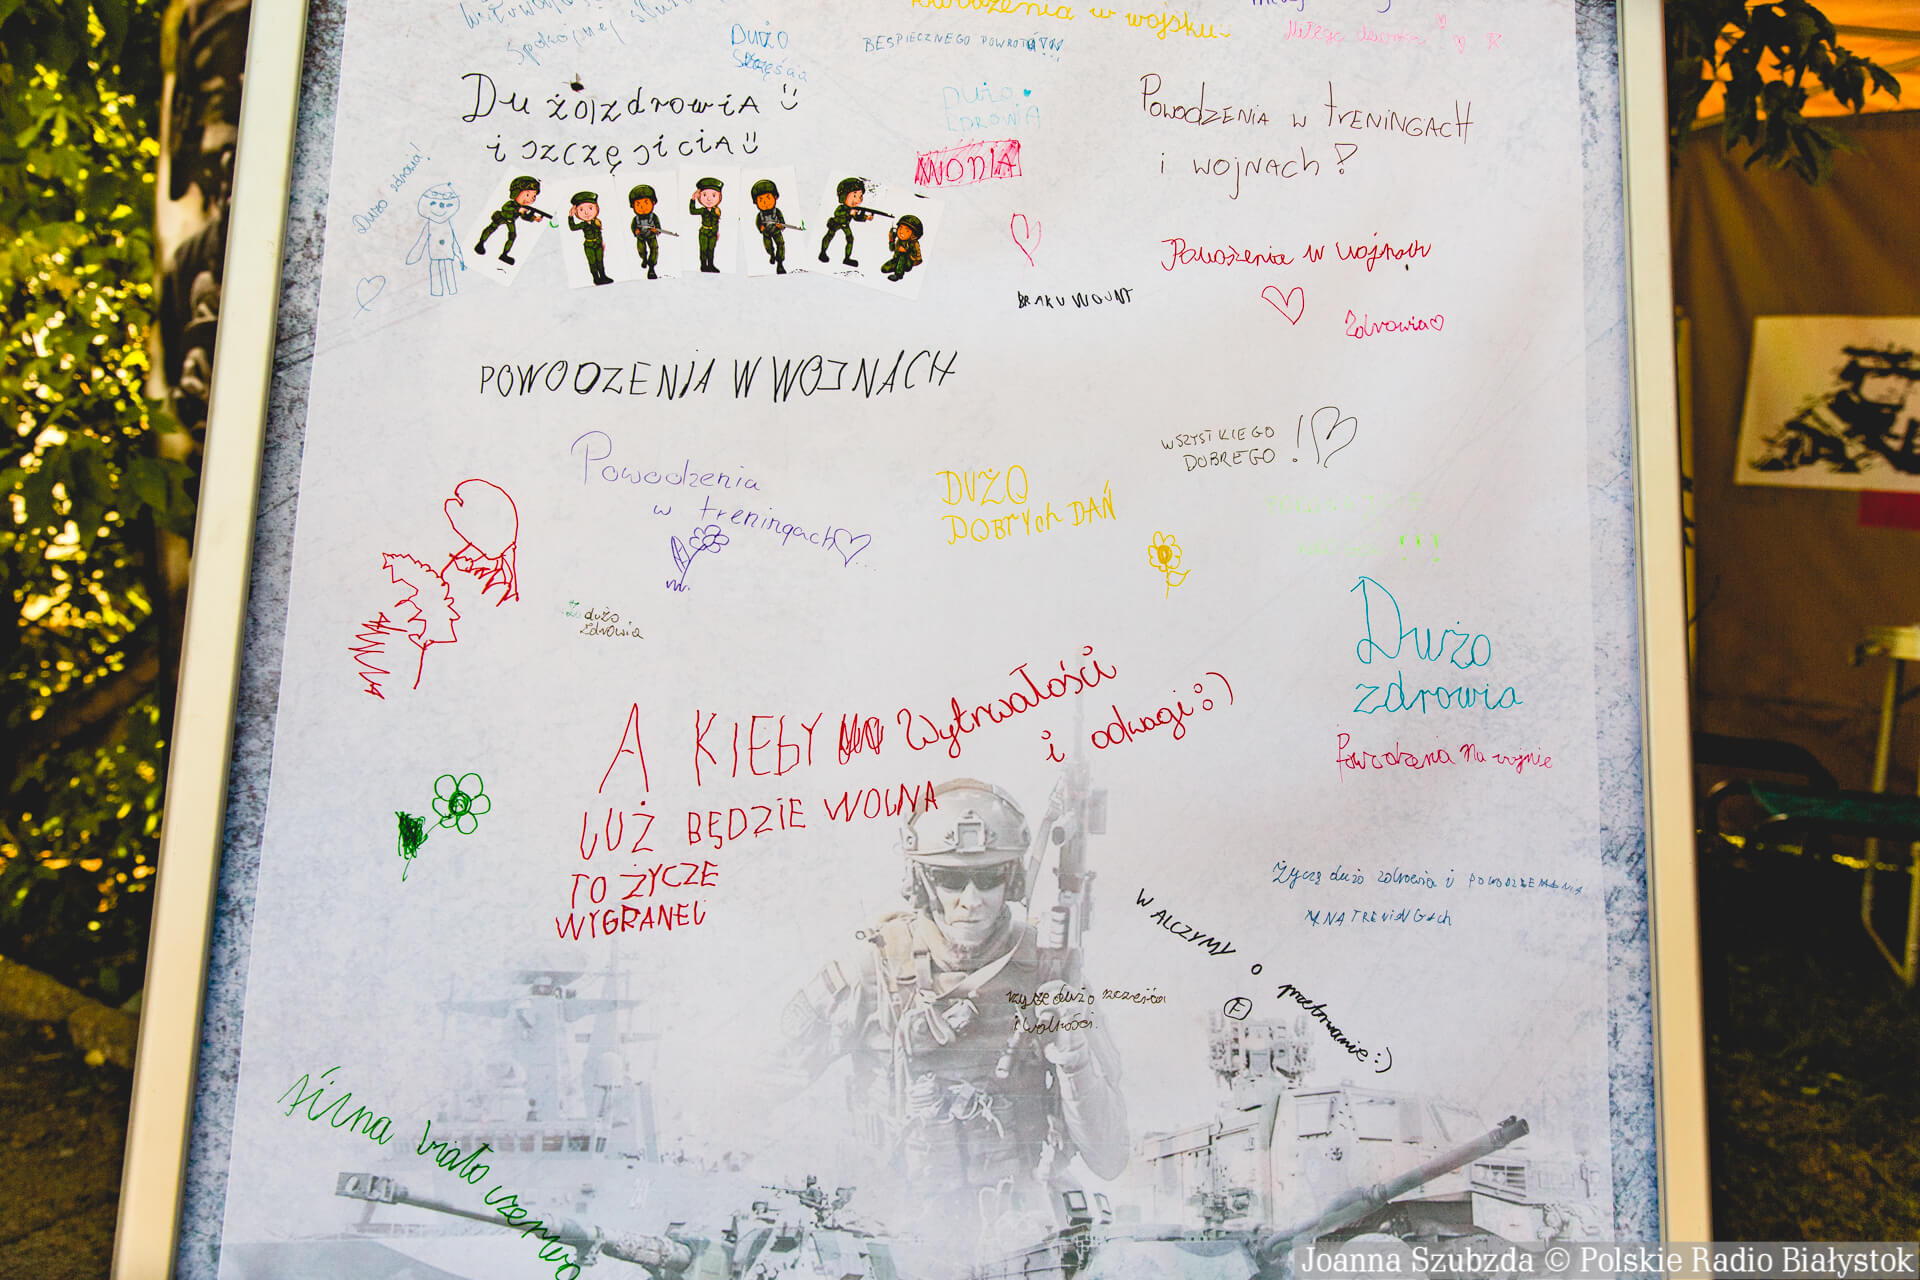 Spokojnej
DUŻO
Szczęścia
BESPIECZNEGO POWROTU!!!
w wojsku
Miłego dzionka!
DużO zdrowiA
i szczęsiciA
DUŻO
ZDROWIA
WONIA
POWODZENIA w trENINGACH
i wojNACH?
Dużo zdrowia!
Powożenia w wojnach
Zdrowia
BRAKU WOJNY
POWODZENIA W WOJNACH
WSZYSTKIEGO
DOBREGO!
Powodzenia
w treningach
DUŻO
DOBRYCh DAŃ
dużo
zdrowia
Dużo
zdrowia
Wytrwałości
i odwagi :)
A KIEBY
JUŻ BĘDZIE WOJNA
TO ŻYCZE
WYGRANEJ
Powodzenia na wojnie
Życzę dużo zdrowia i POWODZENIA
NA TRENINGACh
WALCZYMY o przetrwanie :)
F
rzysze dużo szczęścia
i wolności.
silna biało czerwo
Joanna Szubzda © Polskie Radio Białystok